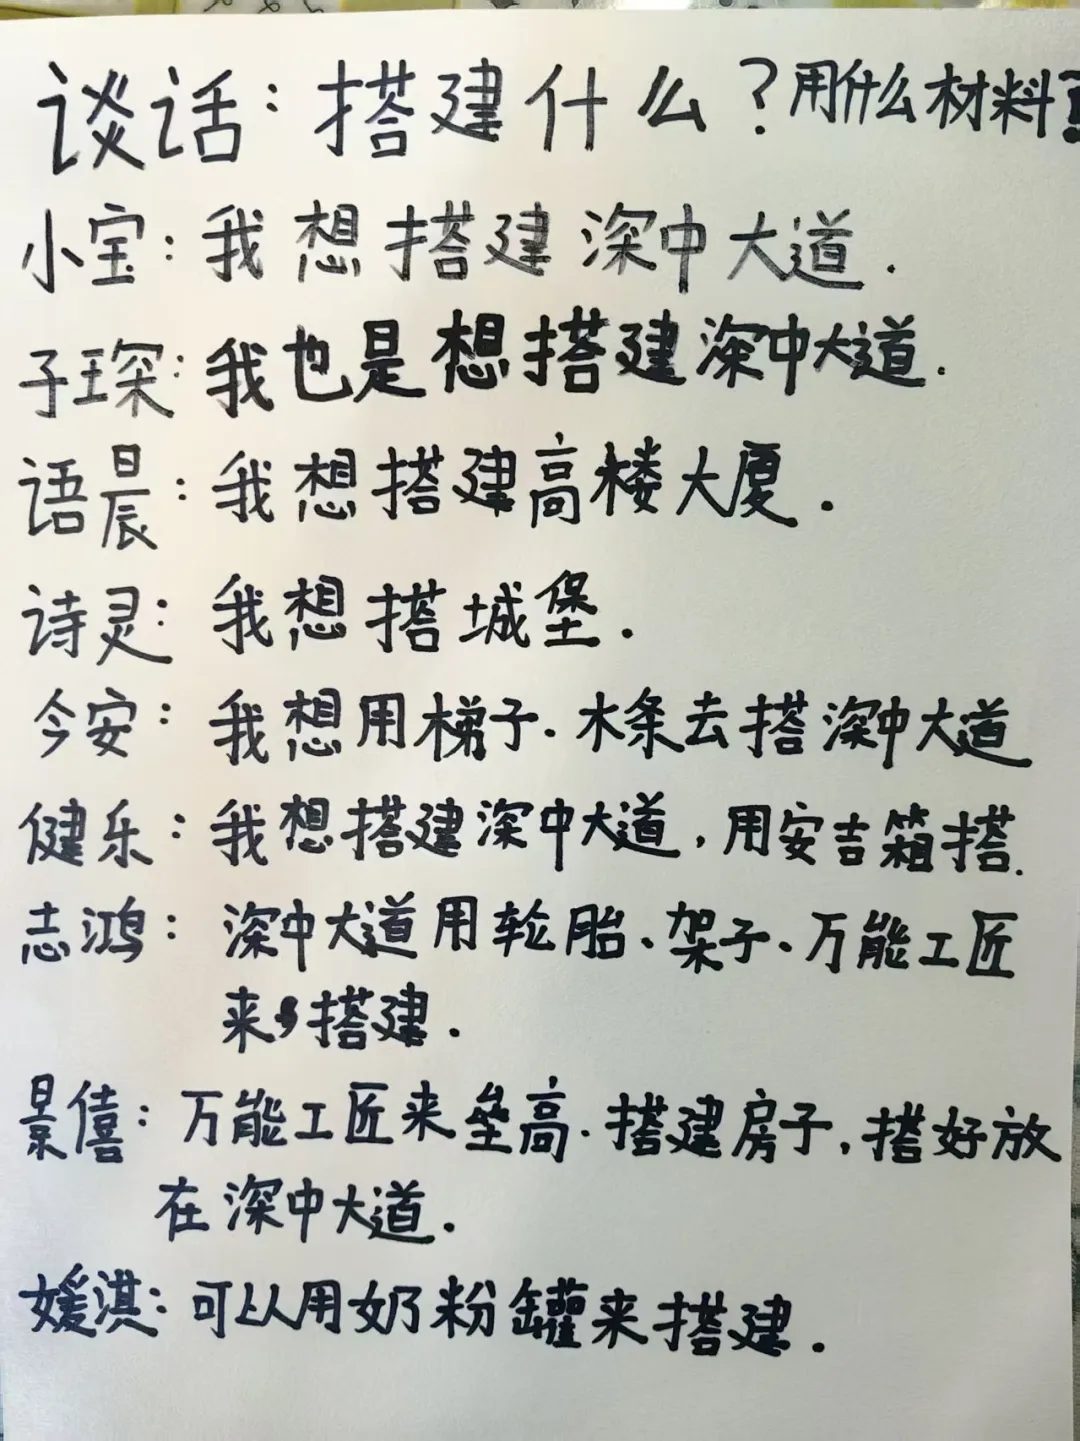 谈话：搭建什么？用什么材料？
小宝：我想搭建深中大道.
子琛：我也是想搭建深中大道.
语晨：我想搭建高楼大厦.
诗灵：我想搭城堡.
今安：我想用梯子.木条去搭深中大道
健乐：我想搭建深中大道,用安吉箱搭.
志鸿：深中大道用轮胎、架子、万能工匠
来搭建.
景僖：万能工匠来垒高.搭建房子,搭好放
在深中大道.
媛淇：可以用奶粉罐来搭建.